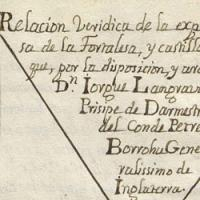 Relacion Veridica de la exp
sa de la Fortalesa, y castill
que, por la disposicion, y ar
Dⁿ Iorque Langrav
Prisipe de Darmest
del Conde Petre
Borrohu Gene
ralissimo de
Inglaterra.